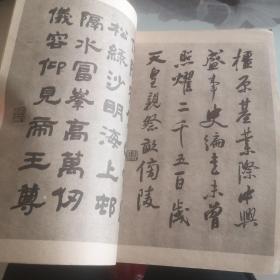 橿原基業際中興
盛事史編未曾
照耀二千五百歳
天皇親祭畝傍陵
松緑沙明海上邨
隔水富峯高萬仞
儀容仰見帝王尊